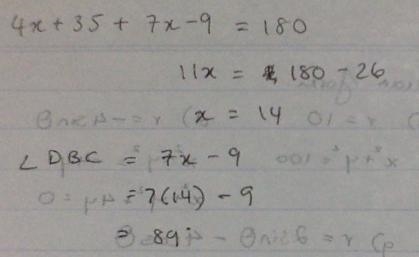 4x + 35 + 7x - 9 = 180
11x = 180 - 26
x = 14
∠DBC = 7x - 9
= 7(14) - 9
= 89°